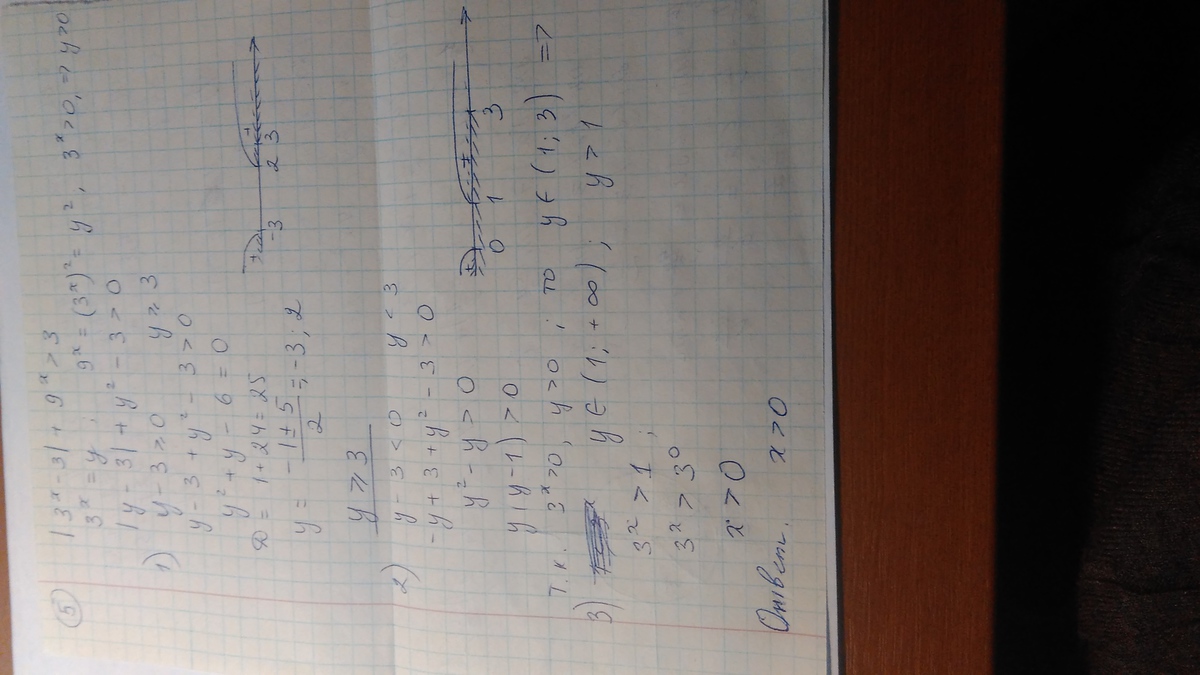 5
|3ˣ-3| + 9ˣ > 3
3ˣ = y; 9ˣ = (3ˣ)² = y², 3ˣ>0, => y>0
|y-3| + y² - 3 > 0
1) y-3 ⩾ 0 y ⩾ 3
y-3 + y² - 3 > 0
y² + y - 6 = 0
D = 1+24 = 25
y = -1±5/2 = -3; 2
+ -3 2 3 +
y ⩾ 3
2) y-3 < 0 y < 3
-y+3+y²-3 > 0
y² - y > 0
y(y-1) > 0
+ 0 1 + 3
Т.к. 3ˣ>0, y>0; то y ∈ (1; 3) =>
3) y ∈ (1; +∞); y > 1
3ˣ > 1;
3ˣ > 3⁰
x > 0
Ответ. x>0